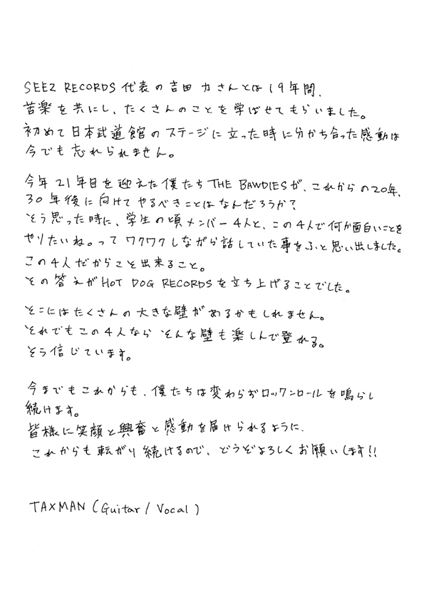 SEEZ RECORDS 代表の吉田 力さんとは19年間、
苦楽を共にし、たくさんのことを学ばせてもらいました。
初めて日本武道館のステージに立った時に分かち合った感動は
今でも忘れられません。
今年21年目を迎えた僕たち THE BAWDIESが、これからの20年、
30年後に向けてやるべきことはなんだろうか?
そう思った時に、学生の頃メンバー4人と、この4人で何か面白いことを
やりたいね。って ワクワクしながら話していた事をふと思い出しました。
この4人だからこそ出来ること。
その答えがHOT DOG RECORDSを立ち上げることでした。
そこにはたくさんの大きな壁があるかもしれません。
それでもこの4人なら そんな壁も楽しんで登れる。
そう信じています。
今までもこれからも、僕たちは変わらずロックンロールを鳴らし
続けます。
皆様に笑顔と興奮と感動を届けられるように、
これからも転がり続けるので、どうぞよろしくお願いします!!
TAXMAN (Guitar / Vocal)